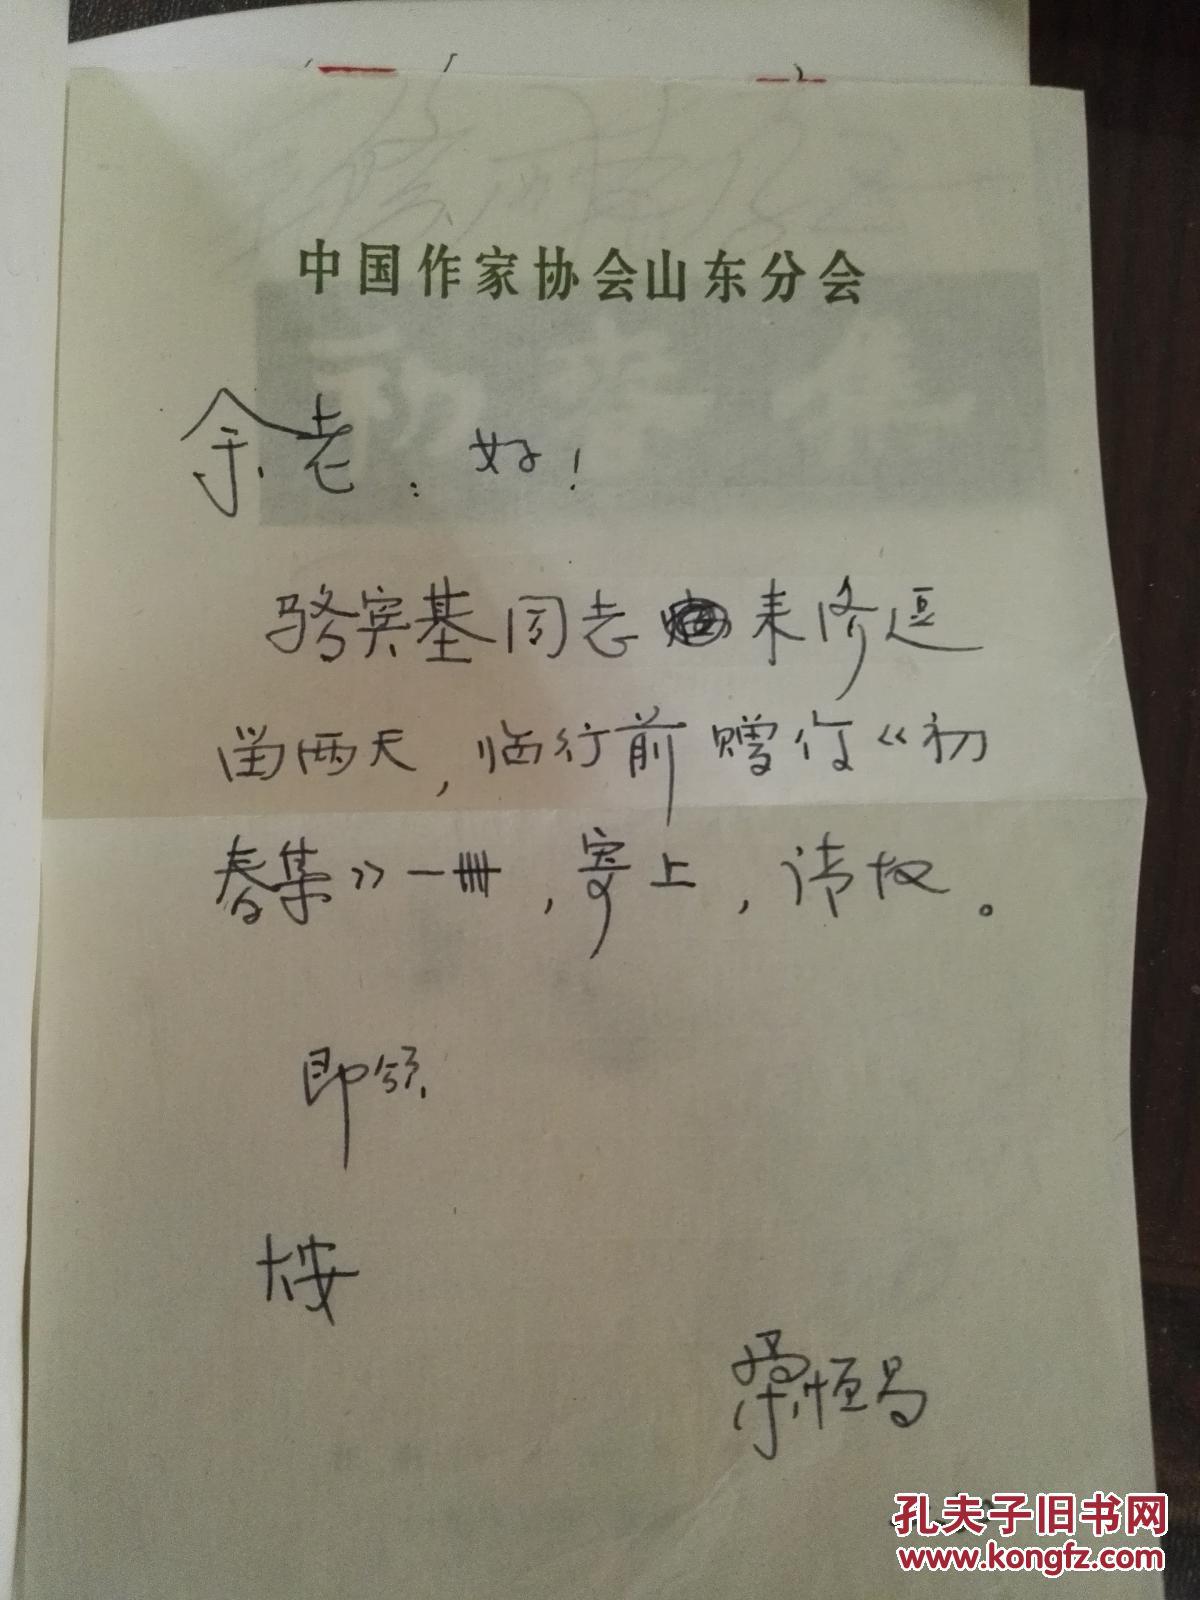 中国作家协会山东分会
余老：好！
骆宾基同志来济逗
留两天，临行前赠你《初
春集》一册，寄上，请收。
即颂
大安
桑恒昌
孔夫子旧书网
www.kongfz.com